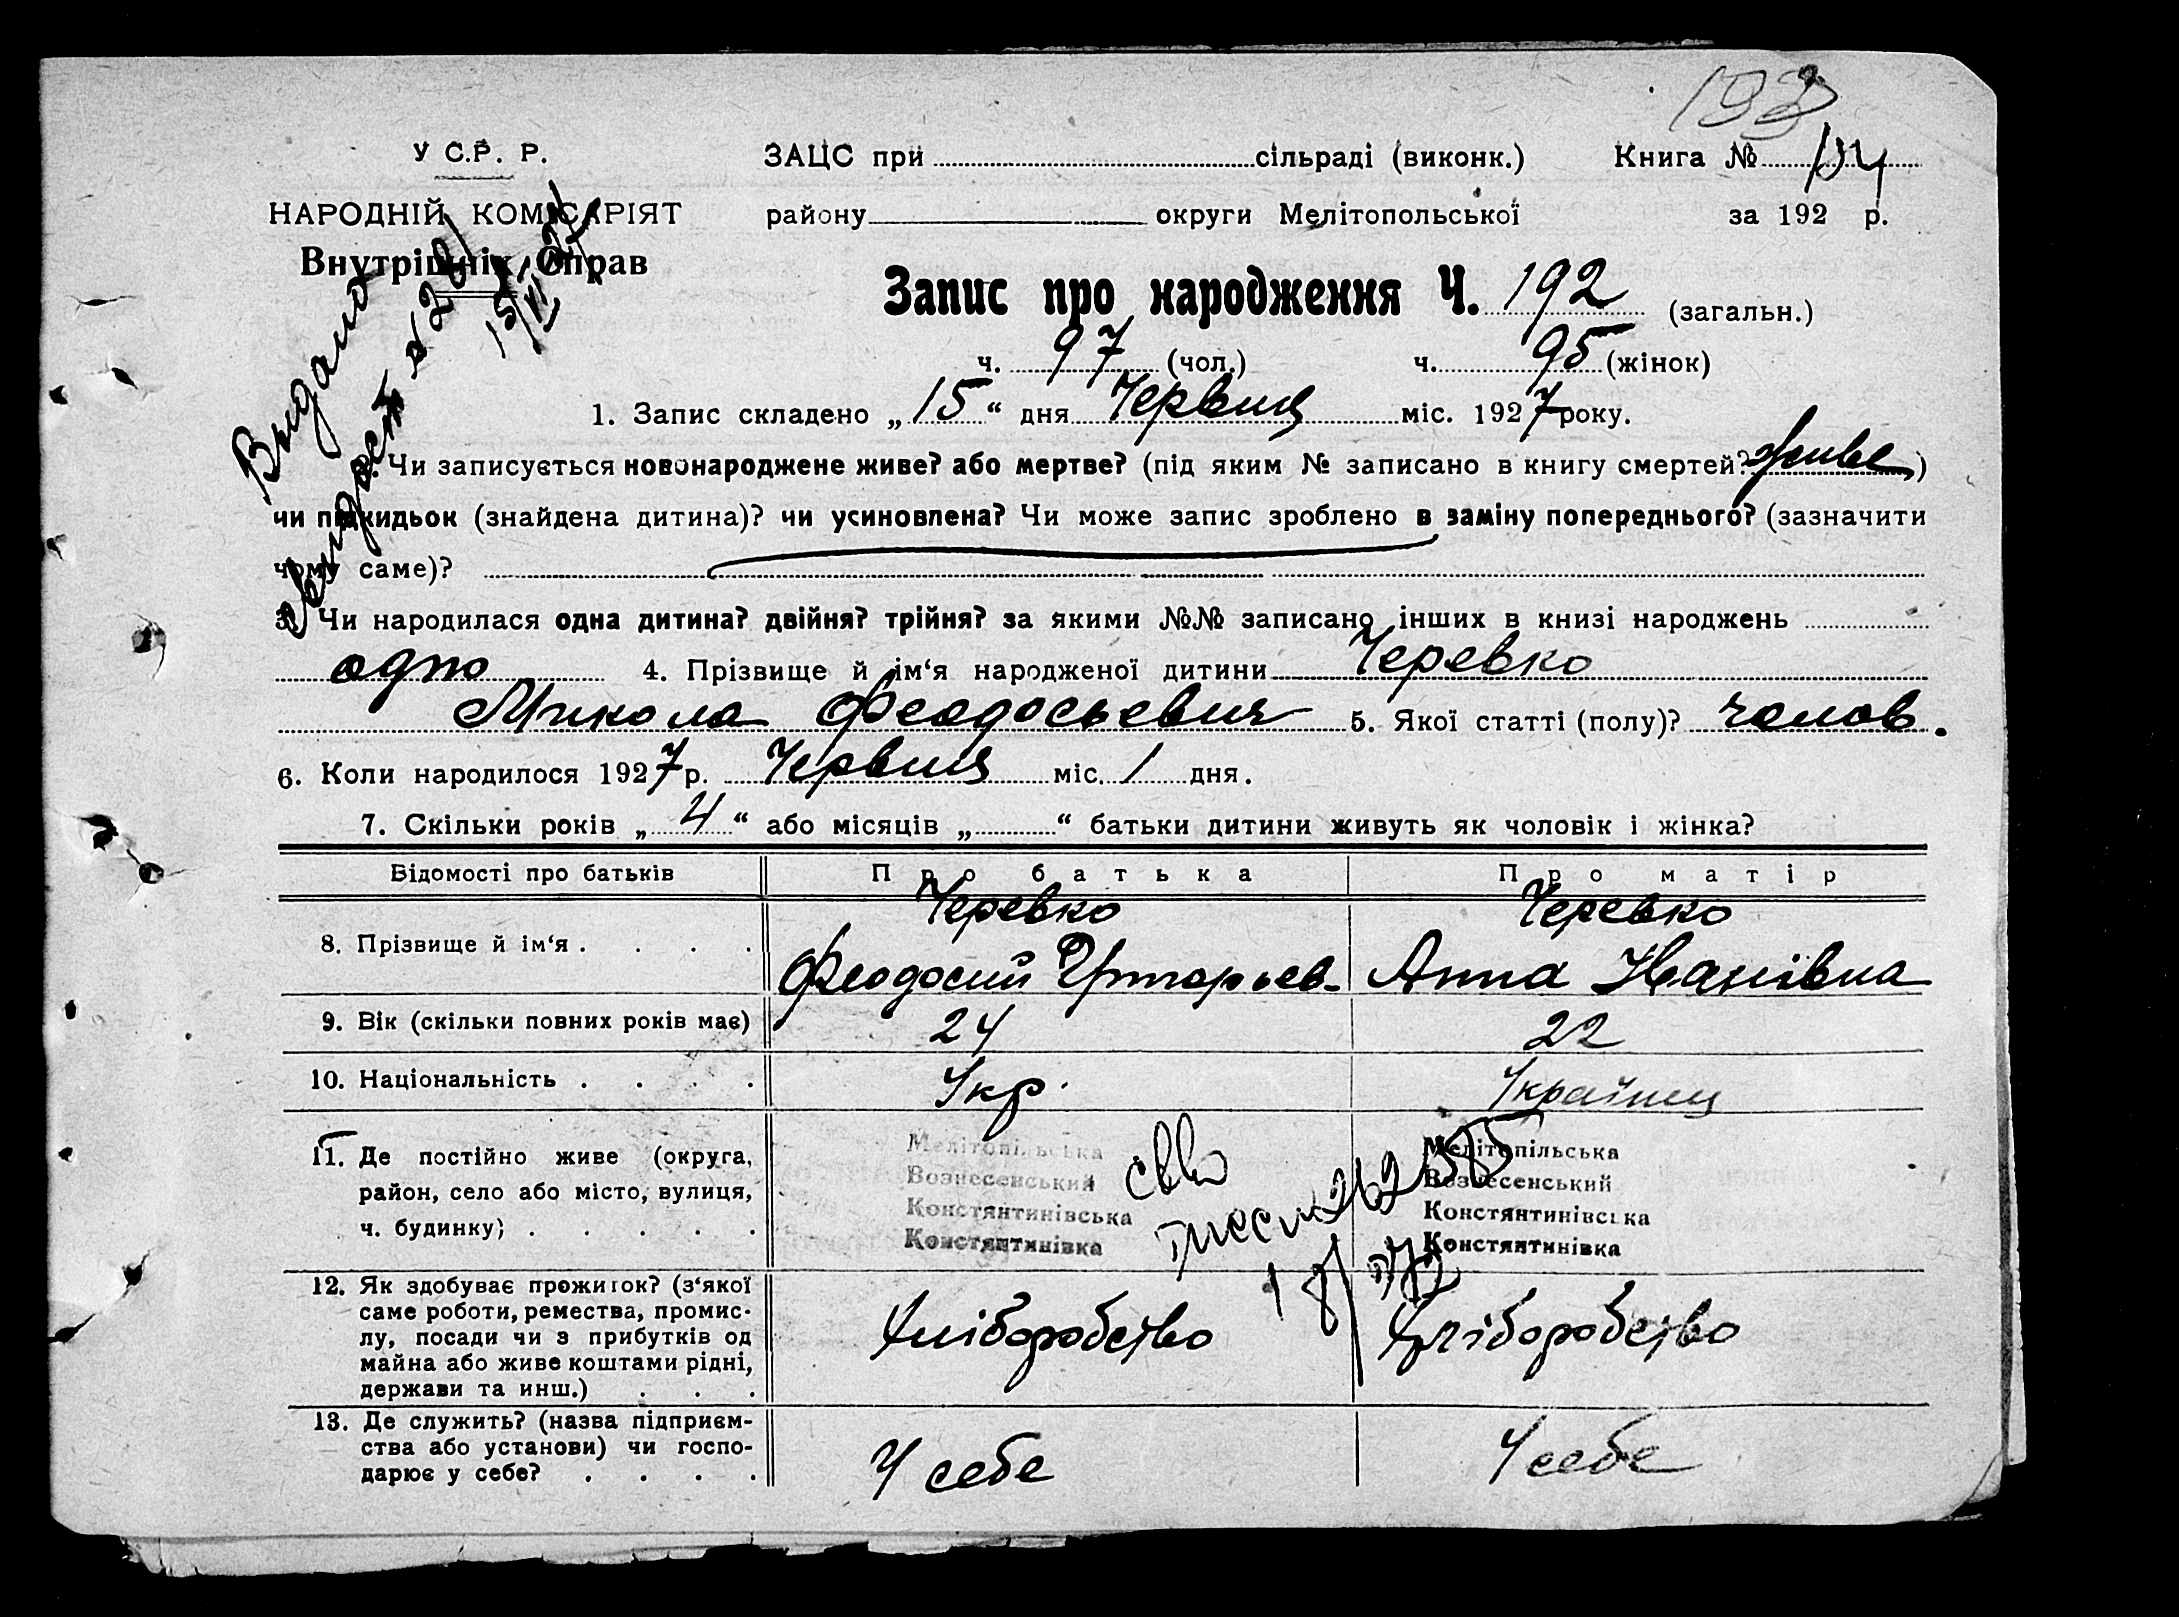 193
У С.Р. Р.
ЗАЦС при сільраді (виконк.) Книга № 104
НАРОДНІЙ КОМІСАРІЯТ
району округи Мелітопольської за 192 р.
Внутрішніх Справ
Видано
свидоцт
Запис про народження Ч. 192 (загальн.)
ч. 97 (чол.) ч. 95 (жінок)
1. Запис складено „15“ дня Червня міс. 1927 року.
Чи записується новонароджене живе? або мертве? (під яким № записано в книгу смертей? живе)
чи підкидьок (знайдена дитина)? чи усиновлена? Чи може запис зроблено в заміну попереднього? (зазначити
чому саме)?
3. Чи народилася одна дитина? двійня? трійня? за якими №№ записано інших в книзі народжень
одно 4. Прізвище й ім‘я народженої дитини Черевко
Микола Феодосьевич 5. Якої статті (полу)? чолов.
6. Коли народилося 1927 р. Червня міс. 1 дня.
7. Скільки років „4“ або місяців „ “ батьки дитини живуть як чоловік і жінка?
Відомості про батьків Про батька Про матір
8. Прізвище й ім‘я . . . . Черевко Феодосий Григорьев Черевко Анна Іванівна
9. Вік (скільки повних років має) 24 22
10. Національність . . . . Укр. Українец
11. Де постійно живе (округа,
район, село або місто, вулиця,
ч. будинку) . . . . .
Мелітопільська
Вознесенський
Константинівська
Константинівка
Мелітопільська
Вознесенський
Константинівська
Константинівка
12. Як здобуває прожиток? (з‘якої
саме роботи, ремества, промис-
лу, посади чи з прибутків од
майна або живе коштами рідні,
держави та инш.) . . .
Хліборобство Хліборобство
13. Де служить? (назва підприєм-
ства або установи) чи госпо-
дарює у себе? . . . .
У себе У себе